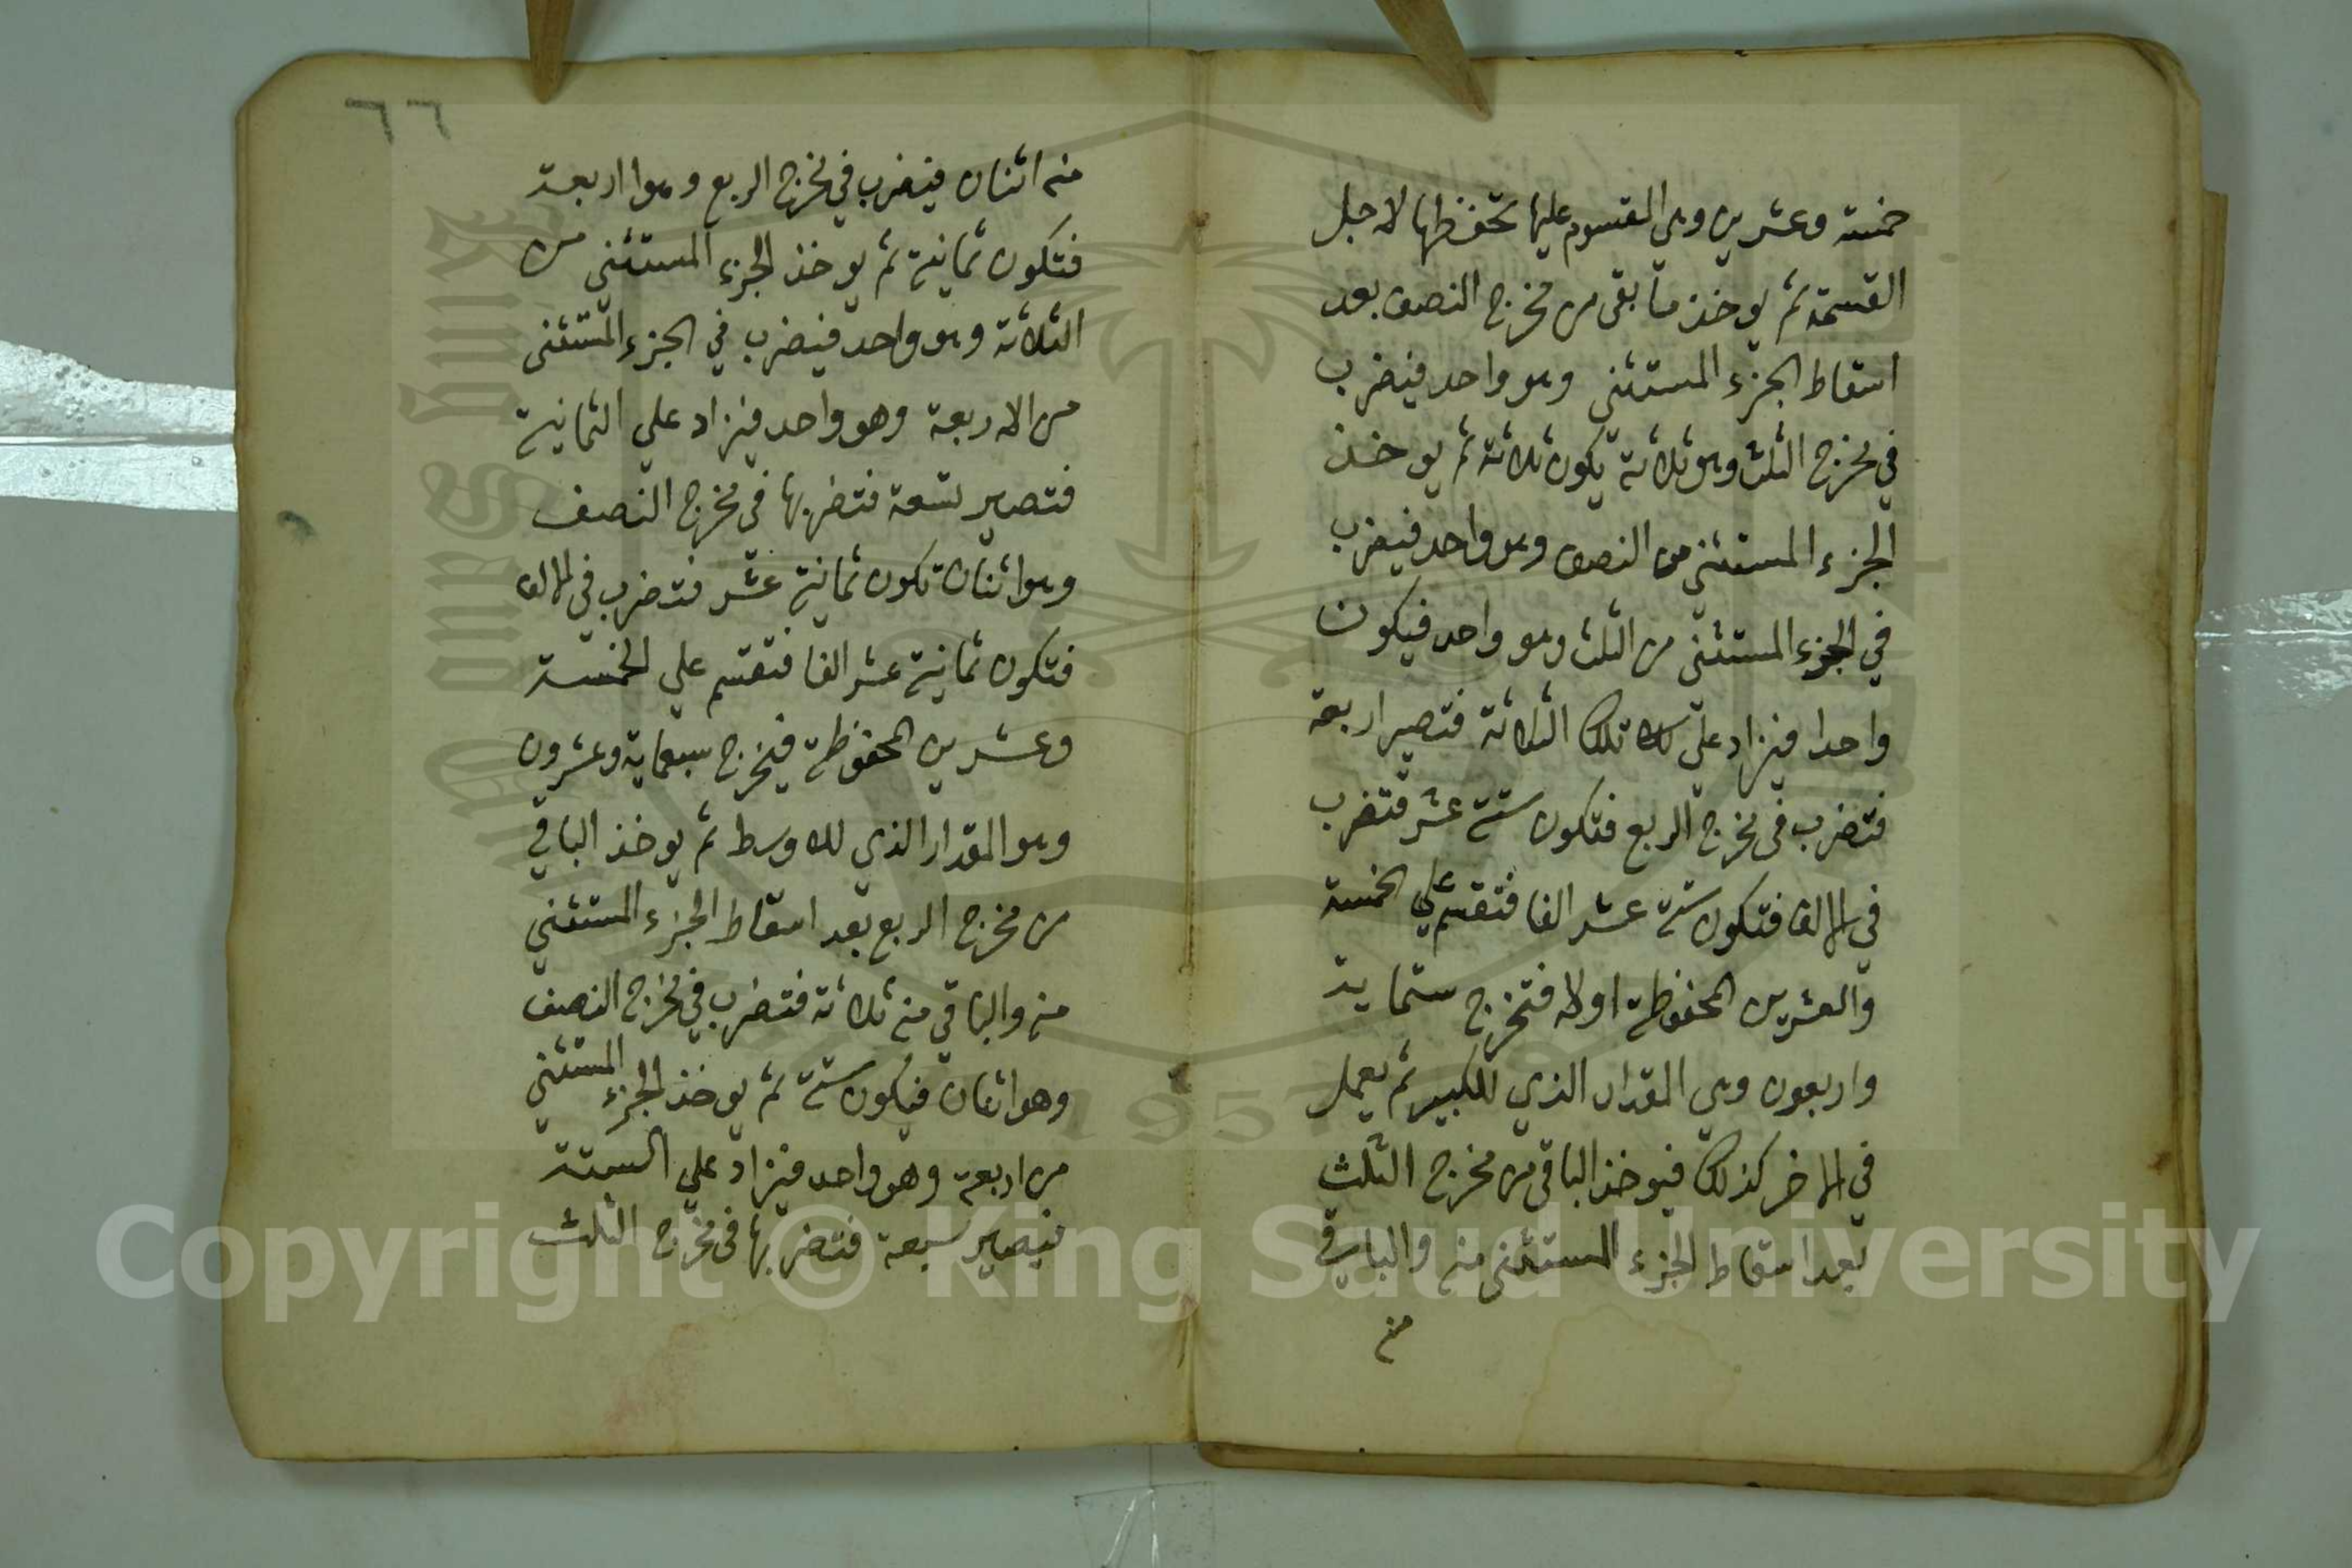 خمسة وعشرين وهي المقسوم عليها تحفظها لاجل
القسمة ثم يوخذ ما بقي من مخرج النصف بعد
اسقاط الجزء المستثني وهو واحد فيضرب
في مخرج الثلث وهو ثلاثة يكون ثلاثة ثم يوخذ
الجزء المستثني من النصف وهو واحد فيضرب
في الجزء المستثني من الثلث وهو واحد فيكون
واحدا فيزاد علي تلك الثلاثة فتصير اربعة
فتضرب في مخرج الربع فتكون ستة عشر فتضرب
في الالف فتكون ستة عشر الفا فتقسم علي الخمسة
والعشرين المحفوظة اولا فتخرج ستماية
واربعون وهي المقدار الذي للكبير ثم يعمل
في الاخر كذلك فيوخذ الباقي من مخرج الثلث
بعد اسقاط الجزء المستثني منه والباقي
منه
٦٦
منه اثنان فيضرب في مخرج الربع وهوا اربعة
فتكون ثمانية ثم يوخذ الجزء المستثني من
الثلاثة وهو واحد فيضرب في الجزء المستثني
من الاربعة وهو واحد فيزاد علي الثمانية
فتصير تسعة فتضربها في مخرج النصف
وهو اثنان تكون ثمانية عشر فتضرب في الالف
فتكون ثمانية عشر الفا فتقسم علي الخمسة
وعشرين المحفوظة فيخرج سبعماية وعشرون
وهو المقدار الذي للاوسط ثم يوخذ الباقي
من مخرج الربع بعد اسقاط الجزء المستثني
منه والباقي منه ثلاثة فتضرب في مخرج النصف
وهو اثنان فيكون ستة ثم يوخذ الجزء المستثني
من اربعة وهو واحد فيزاد علي الستة
فيصير سبعة فتضربها في مخرج الثلث
Copyright © King Saud University
1957